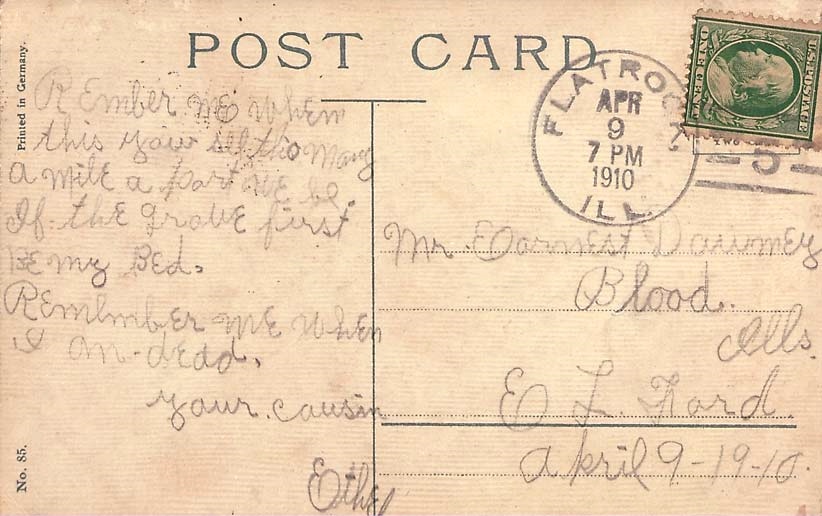 POST CARD
Printed in Germany.
No. 85.
FLATROCK
APR
9
7 PM
1910
ILL.
U.S. POSTAGE
ONE CENT
5
REmbER ME When
this you
Many
a milE a part WE be.
If the gravE first
BE my BEd.
REmlmbER ME When
I am dEad.
your cousin
Ethel
Mr. Earnest
Blood.
Ills.
E L. Ford.
April 9-19-10.